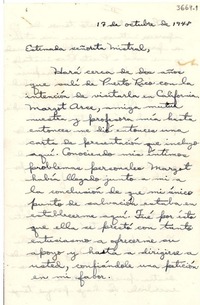 3669.9
17 de octubre de 1948
Estimada señorita Mistral,
Hará cerca de dos años
que salí de Puerto Rico con la
intención de visitarla en California.
Margot Arce, amiga
nuestra y profesora mía hasta
entonces me dió entonces una
carta de presentación que incluyo
aquí. Conociendo mis íntimos
problemas personales Margot
había llegado junto a mí a
la conclusión de que mi único
punto de salvación estaba en
establecerme aquí. Fué por esto
que ella se prestó con tanto
entusiasmo a ofrecerme su
apoyo y hasta a dirigirse a
usted, confiándole una petición
en mi favor.